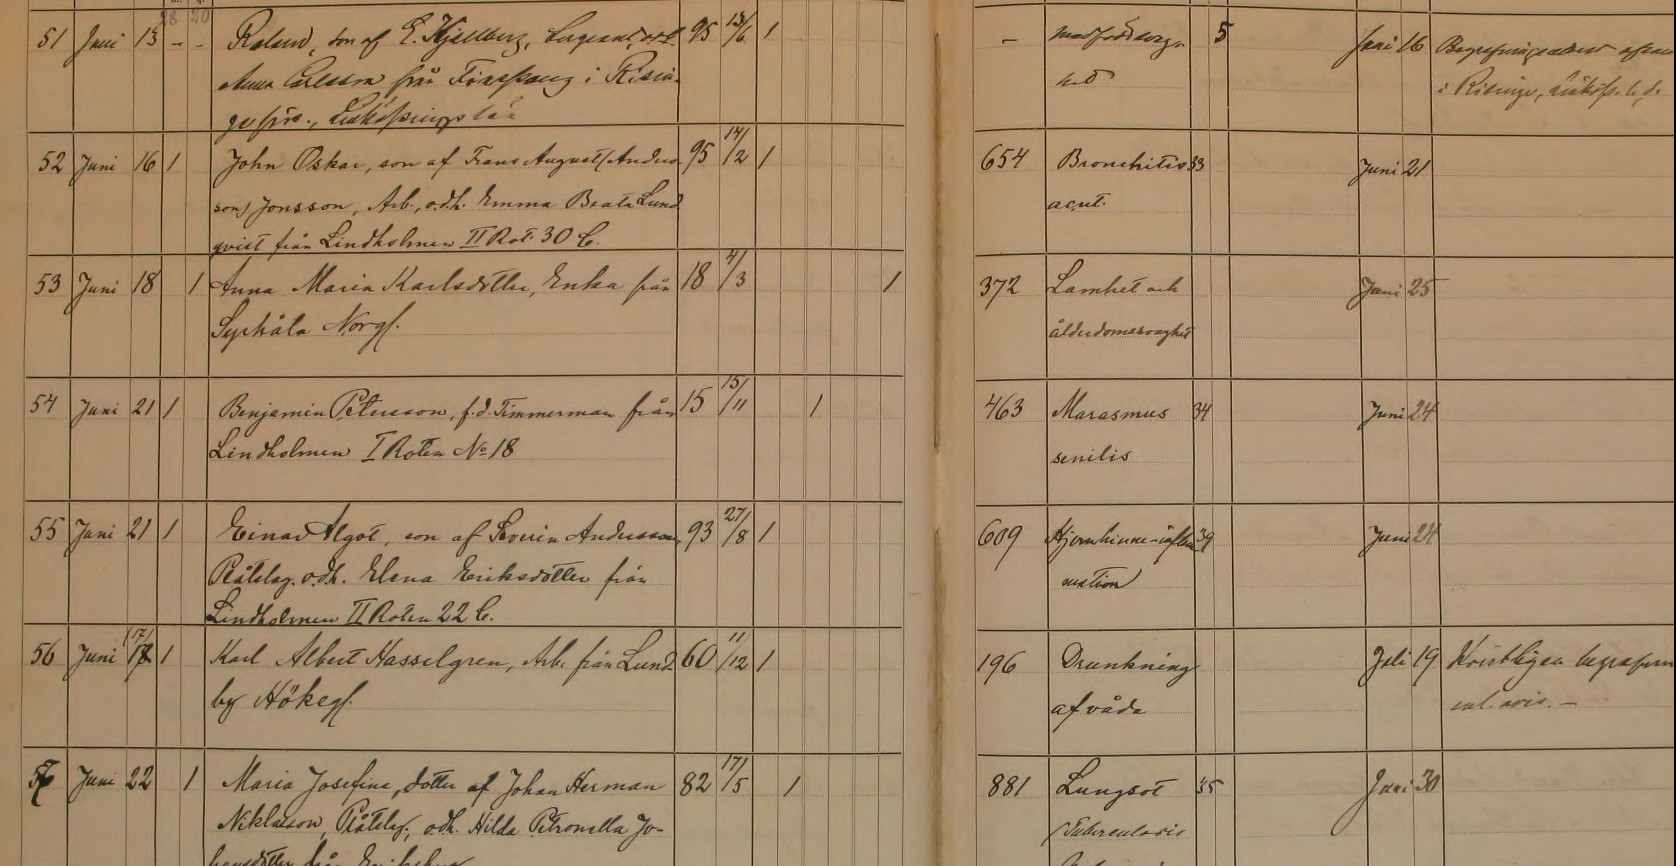 28 20
51 Juni 13 - - Roland, son af E. Kjellberg, Sergeant, o.d.h. 95 13/6 1 – medfödd svag- 5 Juni 16
Anna Carlsson från Finspong i Risin- het i Risinge,
ge förs., Linköpings län
52 Juni 16 1 John Oskar, son af Frans August (Anders- 95 14/2 1 654 Bronchitis 33 Juni 21
son) Jonsson, Arb., o.d.h. Emma Beata Lund acut.
qvist från Lindholmen II Rot. 30 C.
53 Juni 18 1 Anna Maria Karlsdotter, Enka från 18 4/3 1 372 Lamhet och Juni 25
Syrhåla Norg. ålderdomssvaghet
54 Juni 21 1 Benjamin Petersson, f.d. Timmerman från 15 15/11 1 463 Marasmus 34 Juni 24
Lindholmen I Roten No 18 senilis
55 Juni 21 1 Einar Algot, son af Severin Andersson, 93 27/8 1 609 Hjernhinne-inflam 39 Juni 24
Plåtslag. o.d.h. Elena Eriksdotter från mation
Lindholmen II Roten 22 C.
(17/
56 Juni 1 Karl Albert Hasselgren, Arb. från Lund 60 11/12 1 196 Drunkning Juli 19 Kristligen
by Hökeg. af våda
57 Juni 22 1 Maria Josefina, dotter af Johan Herman 82 17/5 1 881 Lungsot 35 Juni 30
Niklasson, Plåtslag., o.d.h. Hilda Petronella Jo- (Tuberculosis
hansdotter från